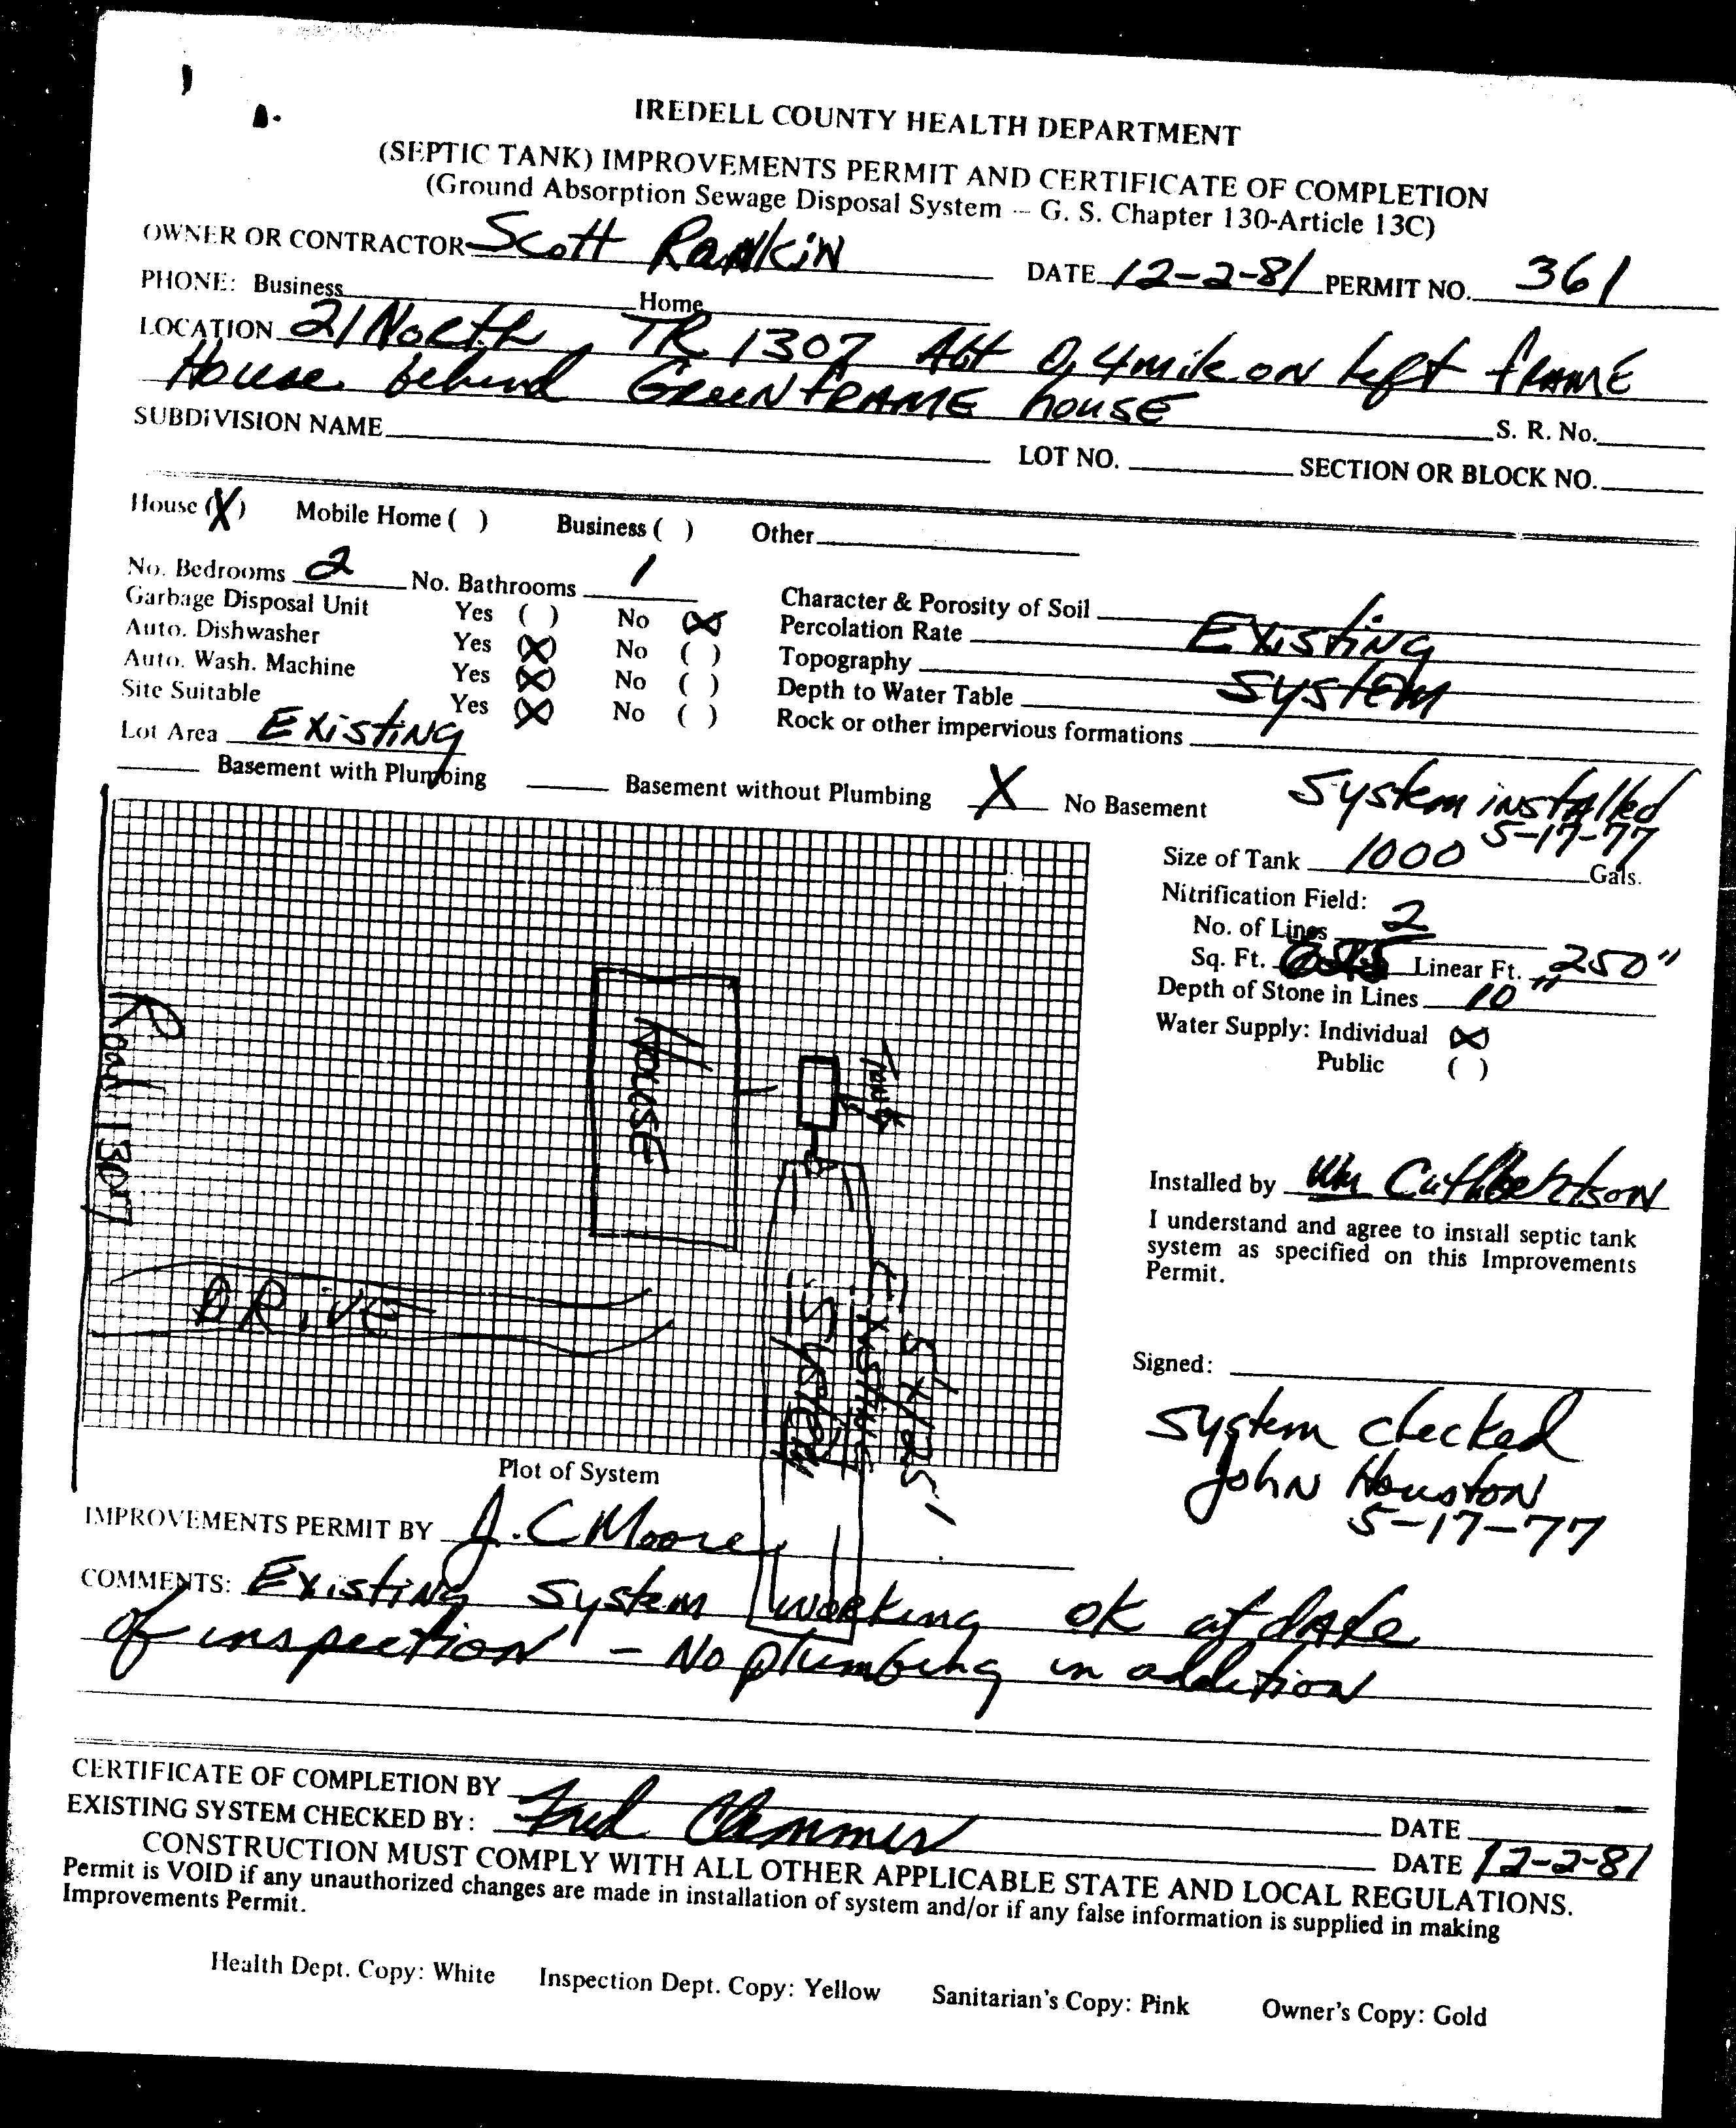 IREDELL COUNTY HEALTH DEPARTMENT
(SEPTIC TANK) IMPROVEMENTS PERMIT AND CERTIFICATE OF COMPLETION
(Ground Absorption Sewage Disposal System -- G. S. Chapter 130-Article 13C)
OWNER OR CONTRACTOR Scott Rankin DATE 12-2-81 PERMIT NO. 361
PHONE: Business Home
LOCATION 21 North TR 1307 Abt 0,4 mile on left frame
House behind Green frame house S. R. No.
SUBDIVISION NAME LOT NO. SECTION OR BLOCK NO.
House (X) Mobile Home ( ) Business ( ) Other
No. Bedrooms 2 No. Bathrooms 1
Garbage Disposal Unit Yes ( ) No (X)
Auto. Dishwasher Yes (X) No ( )
Auto. Wash. Machine Yes (X) No ( )
Site Suitable Yes (X) No ( )
Lot Area Existing
Character & Porosity of Soil
Percolation Rate Existing
Topography
Depth to Water Table System
Rock or other impervious formations
Basement with Plumbing Basement without Plumbing X No Basement
System installed
5-17-77
Size of Tank 1000 Gals.
Nitrification Field:
No. of Lines 2
Sq. Ft. Linear Ft. 250"
Depth of Stone in Lines 10"
Water Supply: Individual (X)
Public ( )
Road 1307
House
Tank
Drive
Existing
System
Installed by Wm Cuthbertson
I understand and agree to install septic tank
system as specified on this Improvements
Permit.
Signed:
System checked
John Houston
5-17-77
Plot of System
IMPROVEMENTS PERMIT BY J. C Moore
COMMENTS: Existing system working ok at date
of inspection - No plumbing in addition
CERTIFICATE OF COMPLETION BY DATE
EXISTING SYSTEM CHECKED BY: Fred Clammer DATE 12-2-81
CONSTRUCTION MUST COMPLY WITH ALL OTHER APPLICABLE STATE AND LOCAL REGULATIONS.
Permit is VOID if any unauthorized changes are made in installation of system and/or if any false information is supplied in making
Improvements Permit.
Health Dept. Copy: White Inspection Dept. Copy: Yellow Sanitarian's Copy: Pink Owner's Copy: Gold